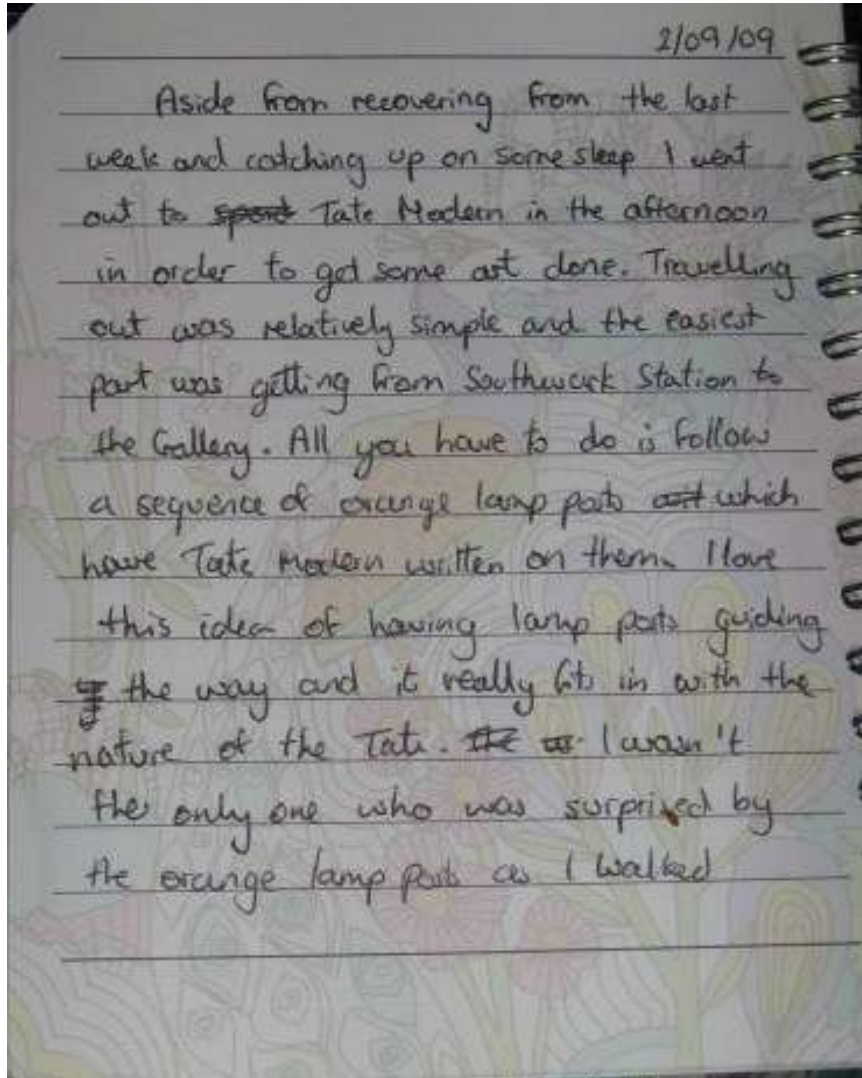 2/09/09
Aside from recovering from the last
week and catching up on some sleep I went
out to spend Tate Modern in the afternoon
in order to get some art done. Travelling
out was relatively simple and the easiest
part was getting from Southwark Station to
the Gallery. All you have to do is follow
a sequence of orange lamp posts which
have Tate Modern written on them. I love
this idea of having lamp posts guiding
the way and it really fits in with the
nature of the Tate. the I wasn't
the only one who was surprised by
the orange lamp posts as I walked